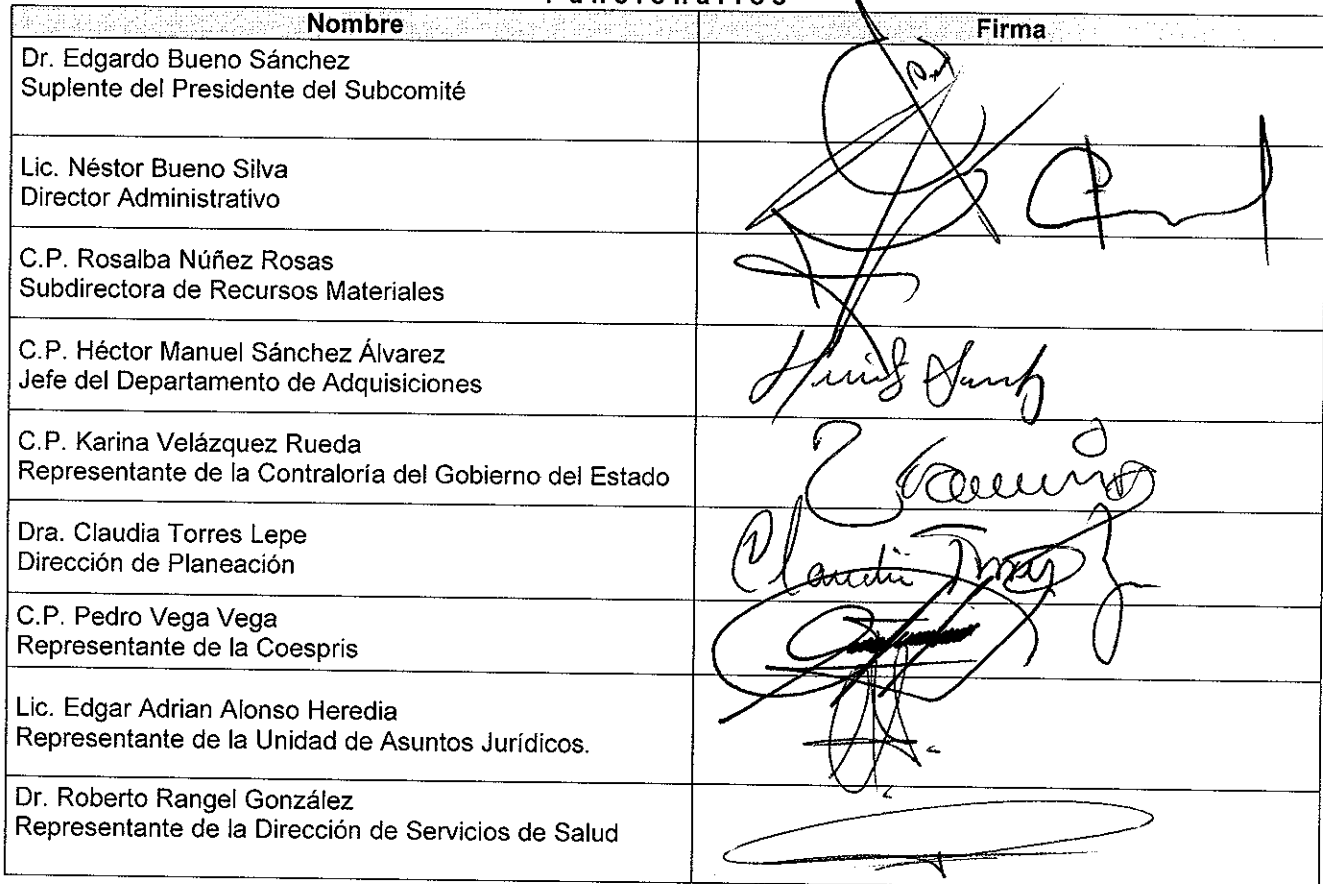 Funcionarios
Nombre
Firma
Dr. Edgardo Bueno Sánchez
Suplente del Presidente del Subcomité
Lic. Néstor Bueno Silva
Director Administrativo
C.P. Rosalba Núñez Rosas
Subdirectora de Recursos Materiales
C.P. Héctor Manuel Sánchez Álvarez
Jefe del Departamento de Adquisiciones
C.P. Karina Velázquez Rueda
Representante de la Contraloría del Gobierno del Estado
Dra. Claudia Torres Lepe
Dirección de Planeación
C.P. Pedro Vega Vega
Representante de la Coespris
Lic. Edgar Adrian Alonso Heredia
Representante de la Unidad de Asuntos Jurídicos.
Dr. Roberto Rangel González
Representante de la Dirección de Servicios de Salud